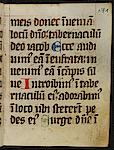 meis donec inueniā
locū dn̄o tabernaculū
deo iacob Ecce audi
uimꝰ eā in eufrata in
uenimꝰ eā in cāpis sil
ue Introibimꝰ in tab
ernaculū eiꝰ adorabimꝰ
in loco ubi steterūt pe
des eiꝰ Surge dn̄e ī